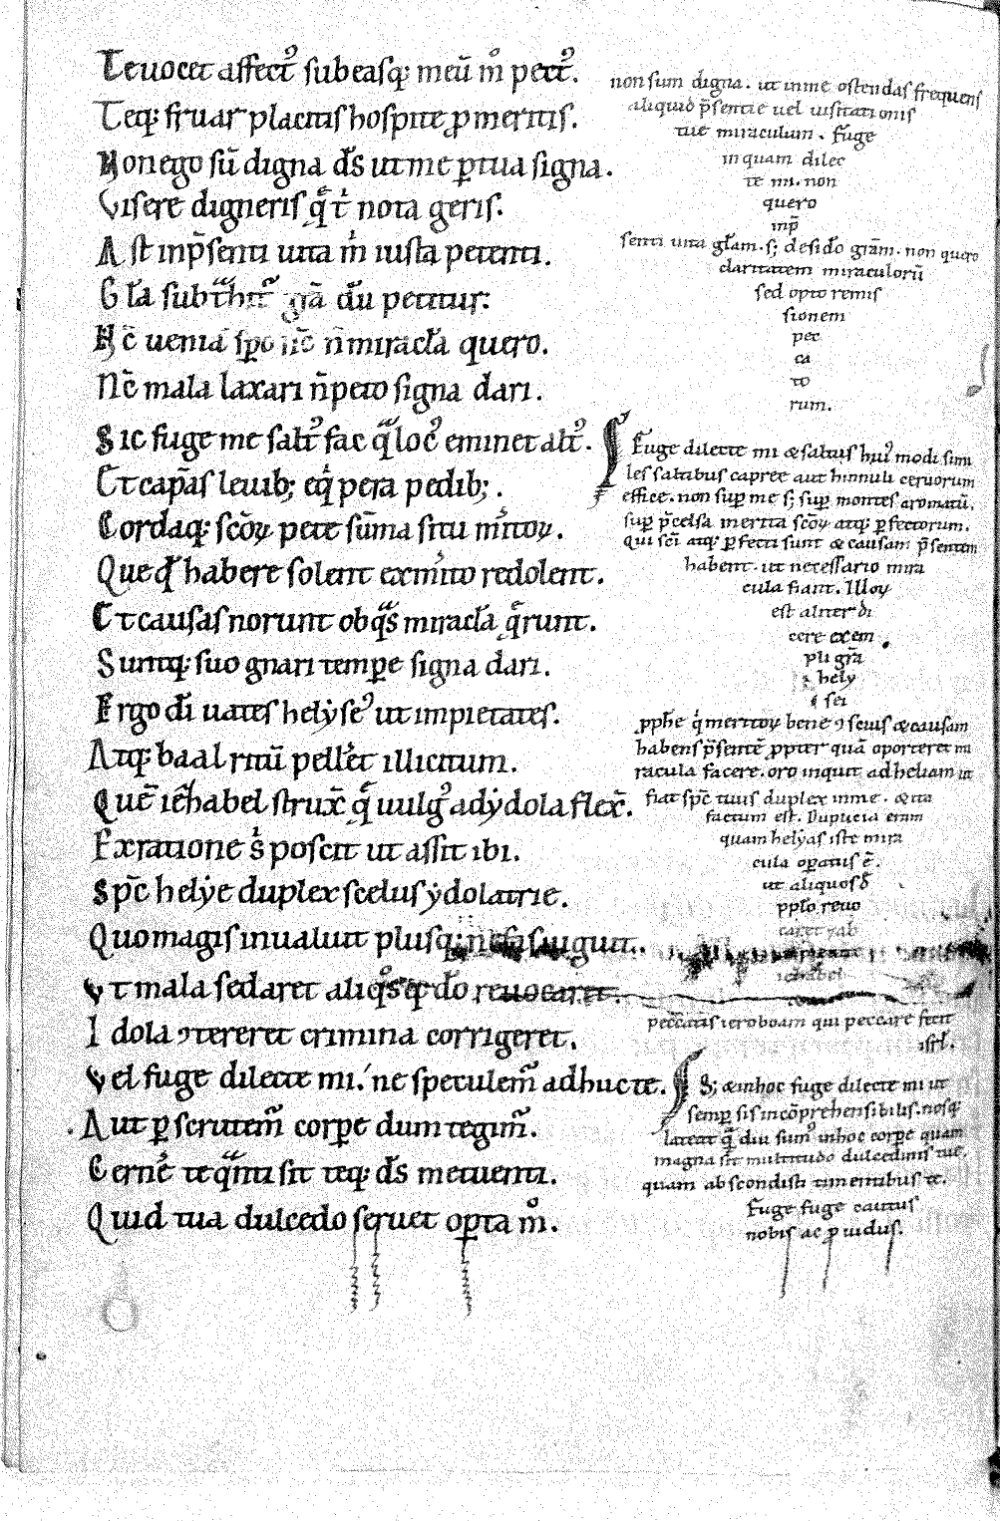 Te uocet affect᷒ subeasq; meū m̊ pect᷒.
Teq; fruar placitis hospite ꝓ meritis.
Non ego sū digna d̄s ut me ꝑ tua signa.
Visere digneris nota geris.
Ast in p̄senti uita m̍ iusta petenti.
petitur:
H̄c uenia n̄ miracl̄a quero.
Nc̄ mala laxari n̄ peto signa dari.
Sic fuge me salt᷒ fac loc᷒ eminet alt᷒.
Et cap̄as leuib; eq̍ pera pedib;.
Cordaq; sc̄oꝝ pete sūma situ m̍itoꝝ.
Que habere solent ex m̍ito redolent.
Et causas norunt ob miracl̄a q̄runt.
Suntq; suo gnari temꝑe signa dari.
Ergo uates helẏse᷒ ut impietates.
Atq; baal ritū pell̍et illicitum.
Quē iēzhabel strux̄ uulg᷒ adẏdola flex̄.
Ex ratione s̍ poscit ut assit ibi.
Sp̄c helẏe duplex scelus ẏdolatrie.
Quo magis inualuit plusq; iuguit.
Vt mala sedaret d̄o reuocaret.
Idola ꝯtereret crimina corrigeret.
Vel fuge dilecte mi. ne speculem̃ adhuc te.
Aut ꝑscrutem̃ corꝑe dum tegim̃.
Cern̍e te q̄nti sit teq; d̄s metuenti.
Quid tua dulcedo seruet oꝑta m̊.
non sum digna. ut in me ostendas frequens
aliquid p̄sentie uel uisitationis
tue miraculum. Fuge
inquam dilec
te mi. non
quero
inp̄
senti uita gl̄am. s; desid̄o grām. non quero
claritatem miraculorū
sed opto remis
sionem
pec
ca
to
rum.
Fuge dilecte mi & saltus hui᷒ modi simi
les saltibus capree aut hinnuli ceruorum
effice. non suꝑ me s; suꝑ montes aromatū.
suꝑ p̄celsa merita sc̄oꝝ atq; ꝑfectorum.
qui sc̄i atq; ꝑfecti sunt & causam p̄sentem
habent. ut necessario mira
cula fiant. Illoꝝ
est aliter di
cere exem
pli gr̄a
hely
sei
ꝓph̄e q̍ meritoꝝ bene ꝯscius & causam
habens p̄sentē ꝓpter quā oporteret mi
racula facere. oro inquit ad heliam ut
fiat sp̄c tuus duplex in me. & ita
factum est. Duplicia enim
quam helẏas iste mira
cula oꝑatus ē.
ut aliquos d̄
ppl̄o reuo
caret ẏab
iezhabel
pecc̄atis ieroboam qui peccare fecit
isrl̄.
S; & in hoc fuge dilecte mi ut
semꝑ sis incōprehensibilis. nosq;
lateat q̄ diu sum᷒ in hoc corꝑe quam
magna sit multitudo dulcedinis tue.
quam abscondisti timentibus te.
Fuge fuge cautus
nobis ac ꝓuidus.